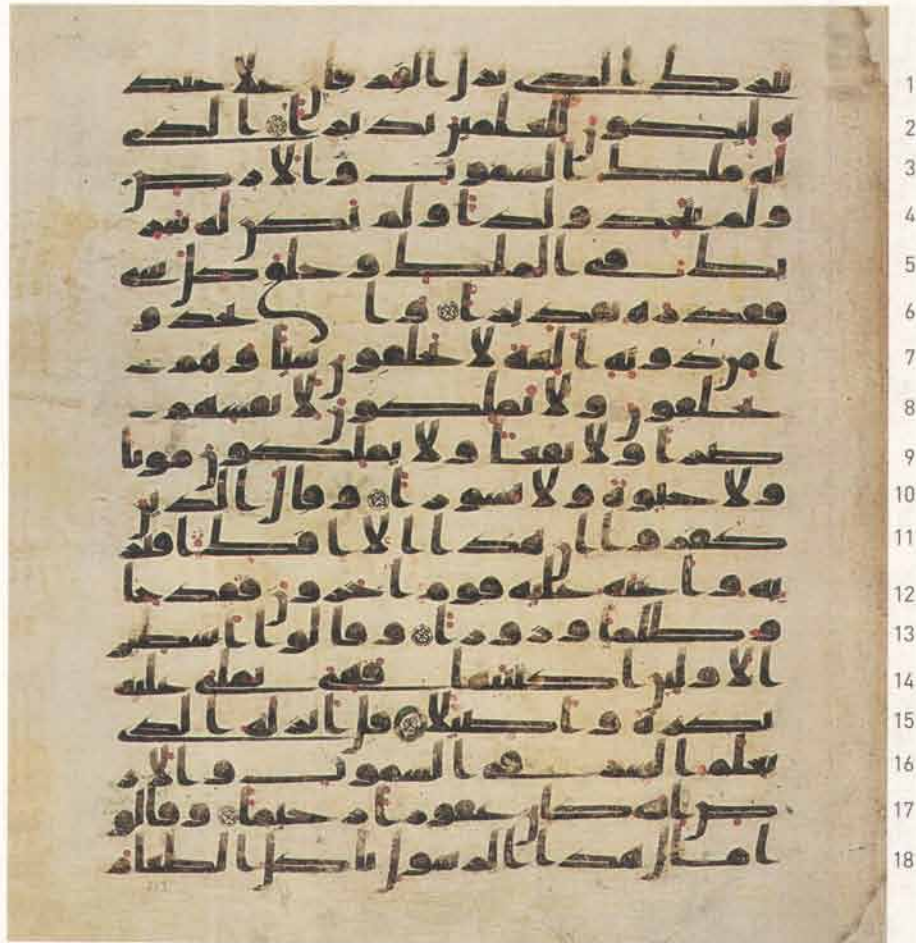 تبرك الذي نزل الفرقان على عبد 1
ه ليكون للعلمين نذيرا الذي 2
له ملك السموت والارض 3
ولم يتخذ ولدا ولم يكن له شر 4
يك في الملك وخلق كل شي 5
فقدره تقديرا وا تخذو 6
ا من دونه الهة لا يخلقون شيا وهم 7
يخلقون ولا يملكون لا نفسهم 8
ضرا ولا نفعا ولا يملكون موتا 9
ولا حيوة ولا نشورا وقال الذين 10
كفروا ان هذا الا افك افتر 11
يه واعنه عليه قوم اخرون فقد جا 12
و ظلما وزورا وقالوا اسطير 13
الاولين اكتتبها فهي تملى عليه 14
بكرة واصيلا قل انزله الذي 15
يعلم السر في السموت والار 16
ض انه كان غفورا رحيما وقالو 17
ا مال هذا الرسول ياكل الطعام 18